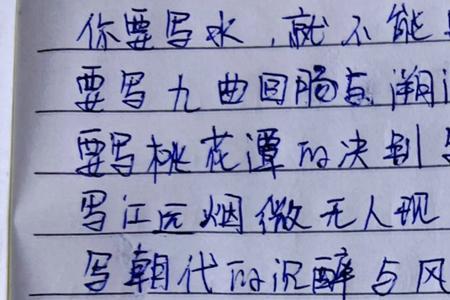 你要写水，就不能
要写九曲回肠与溯
要写桃花潭的决别
写江远烟微无人现
写朝代的沉醉与风